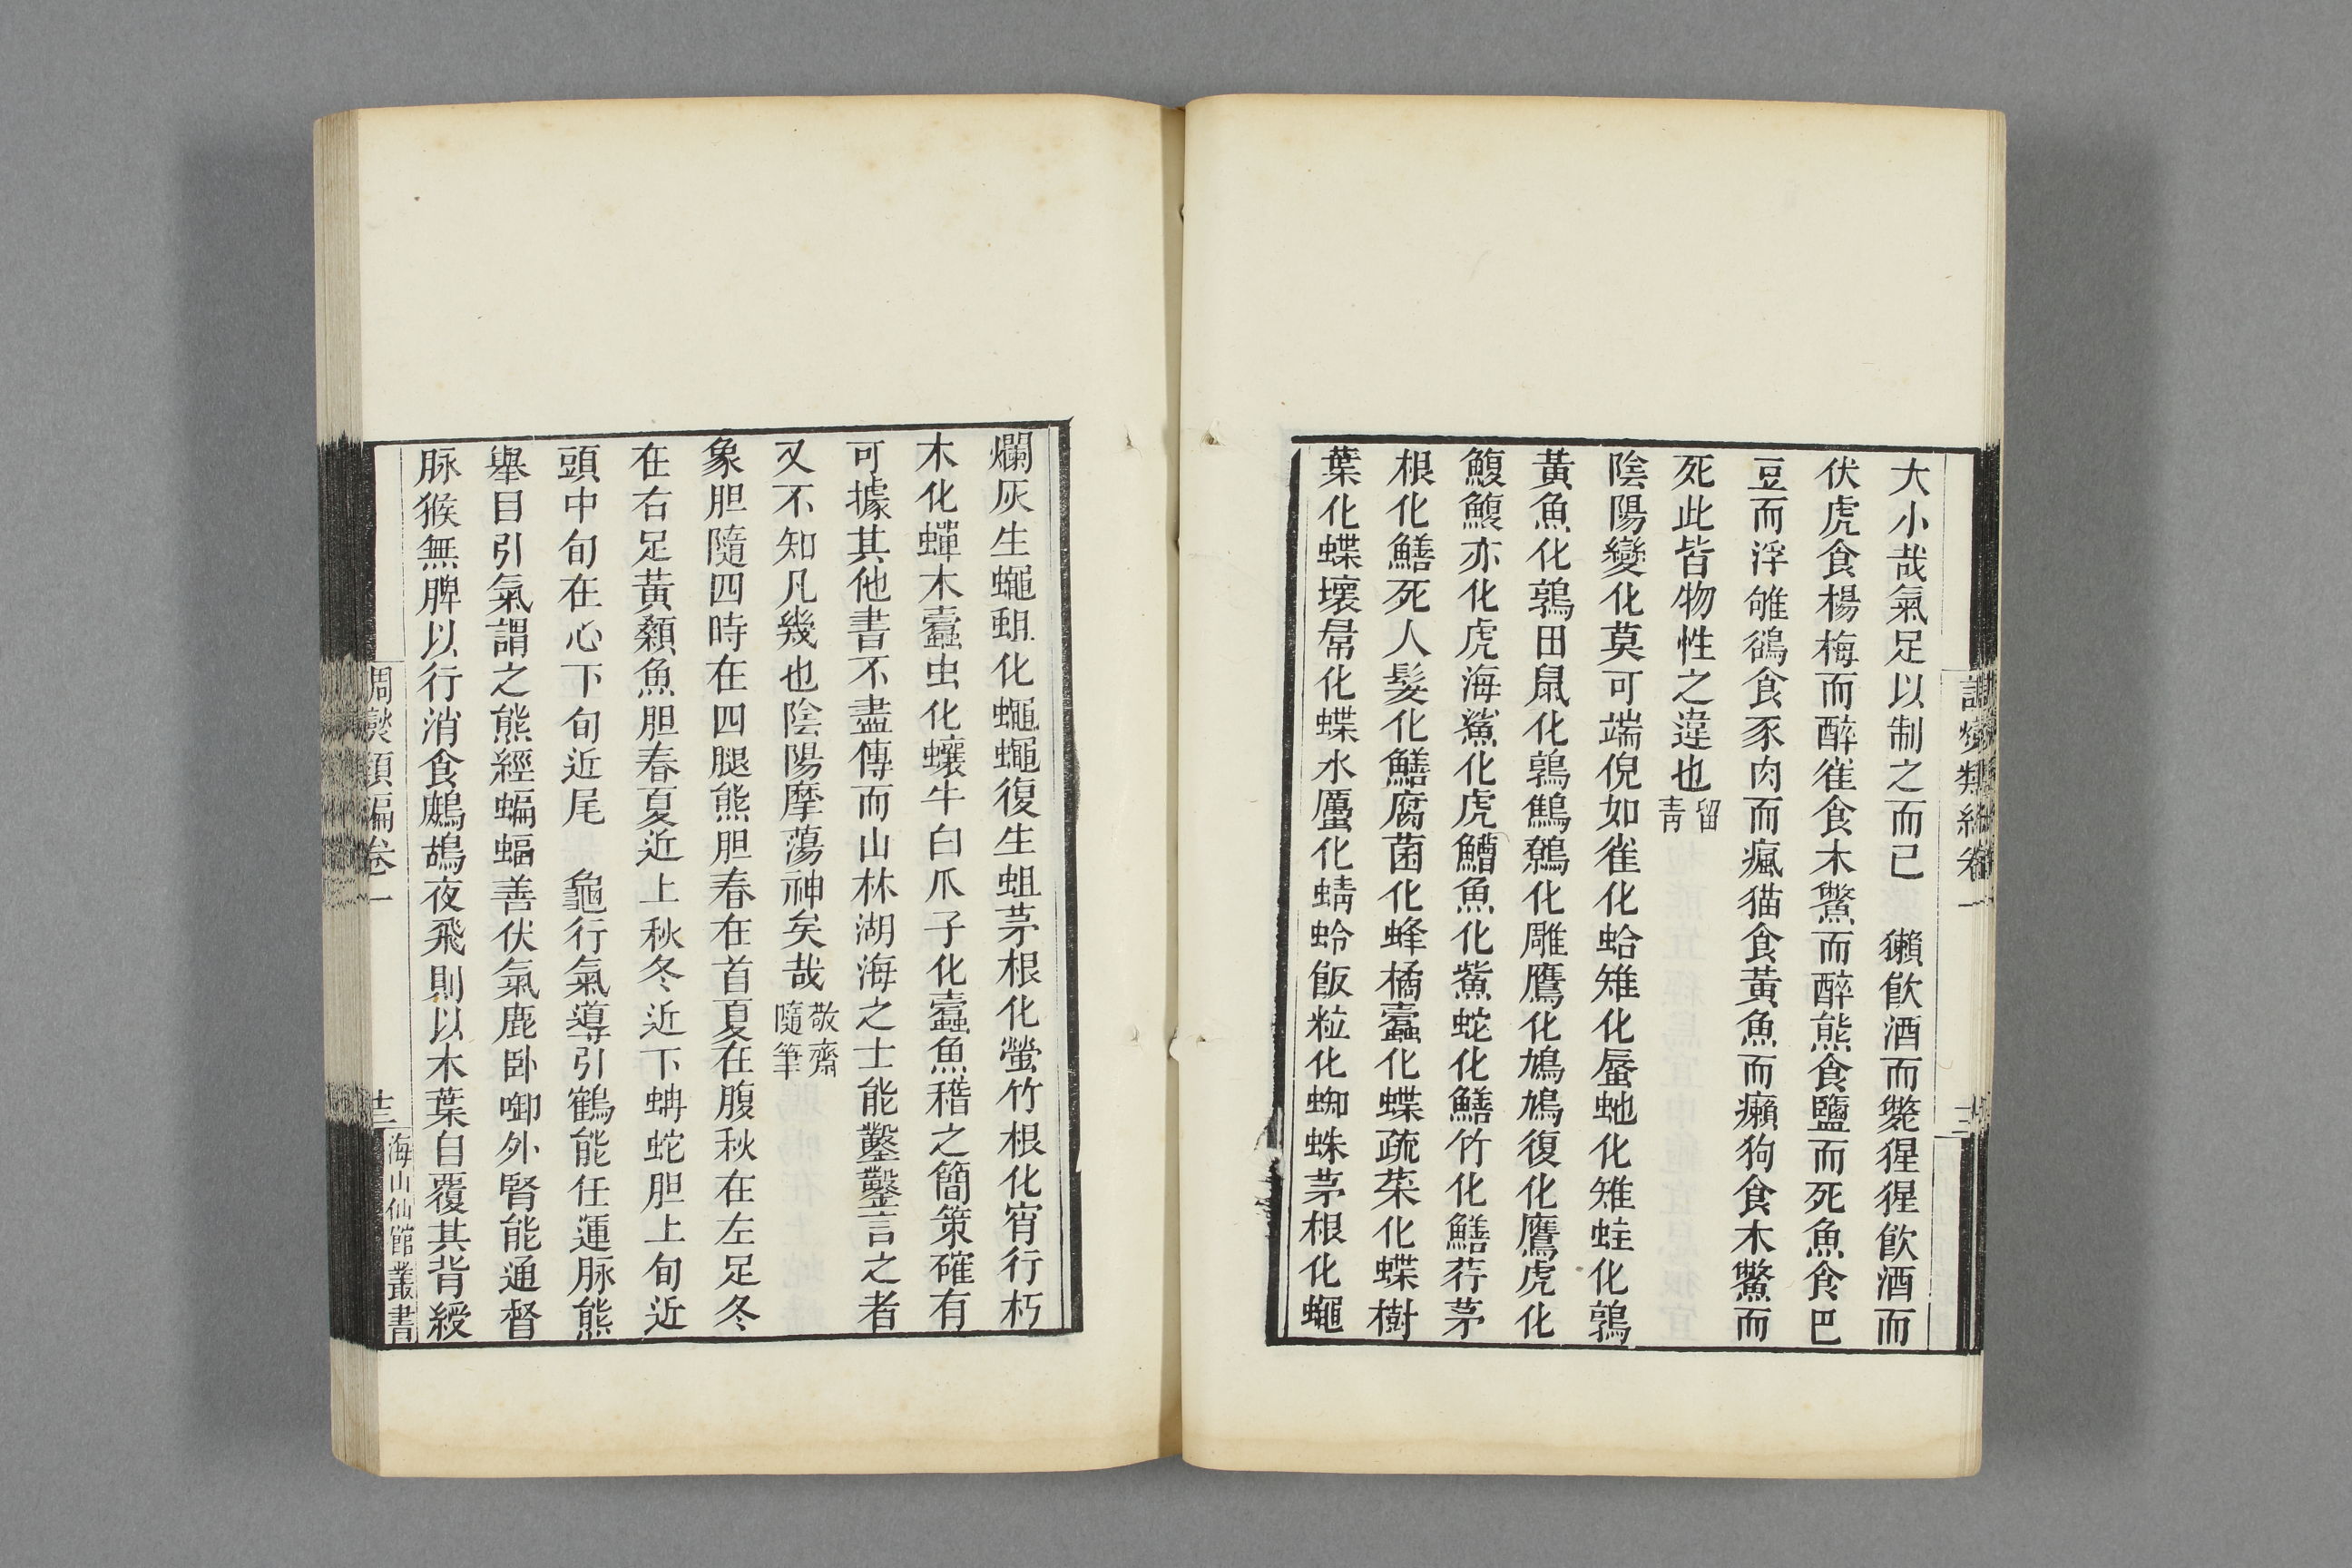 大小哉氣足以制之而已　獺飮酒而斃猩猩飮酒而
伏虎食楊梅而醉雀食木鱉而醉熊食鹽而死魚食巴
豆而浮雊鵒食豕肉而瘋猫食黃魚而癩狗食木鱉而
死此皆物性之違也留青
陰陽變化莫可端倪如雀化蛤雉化蜃虵化雉蛙化鶉
黃魚化鶉田鼠化鶉鷦鷯化雕鷹化鳩鳩復化鷹虎化
鰒鰒亦化虎海鯊化虎鱭魚化鮆蛇化鱔竹化鱔荇茅
根化鱔死人髮化鱔腐菌化蜂橘蠹化蝶疏菜化蝶樹
葉化蝶壞帬化蝶水蠆化蜻蛉飯粒化蜘蛛茅根化蠅
爛灰生蠅蛆化蠅蠅復生蛆茅根化螢竹根化宵行朽
木化蟬木蠹虫化蠰牛白爪子化蠹魚稽之簡策確有
可據其他書不盡傳而山林湖海之士能鑿鑿言之者
又不知凡幾也陰陽摩蕩神矣哉敬齋隨筆
象胆隨四時在四腿熊胆春在首夏在腹秋在左足冬
在右足黃顙魚胆春夏近上秋冬近下蚺蛇胆上旬近
頭中旬在心下旬近尾　龜行氣導引鶴能任運脉熊
舉目引氣謂之熊經蝙蝠善伏氣鹿卧啣外腎能通督
脉猴無脾以行消食鷓鴣夜飛則以木葉自覆其背綬
調爕類編卷一
海山仙館叢書